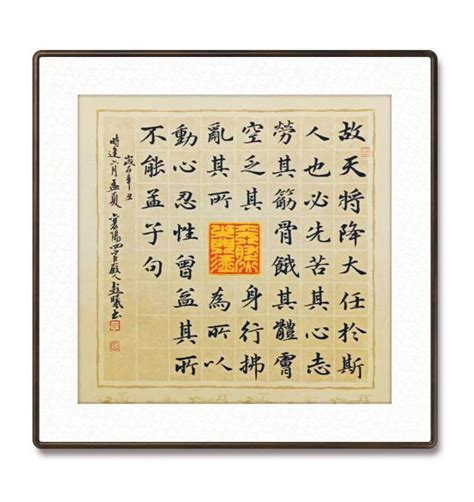 故天將降大任於斯
人也必先苦其心志
勞其筋骨餓其體膚
空乏其身行拂
亂其所為所以
動心忍性曾益其所
不能孟子句
歲在辛丑
時逢六月孟夏襄陽